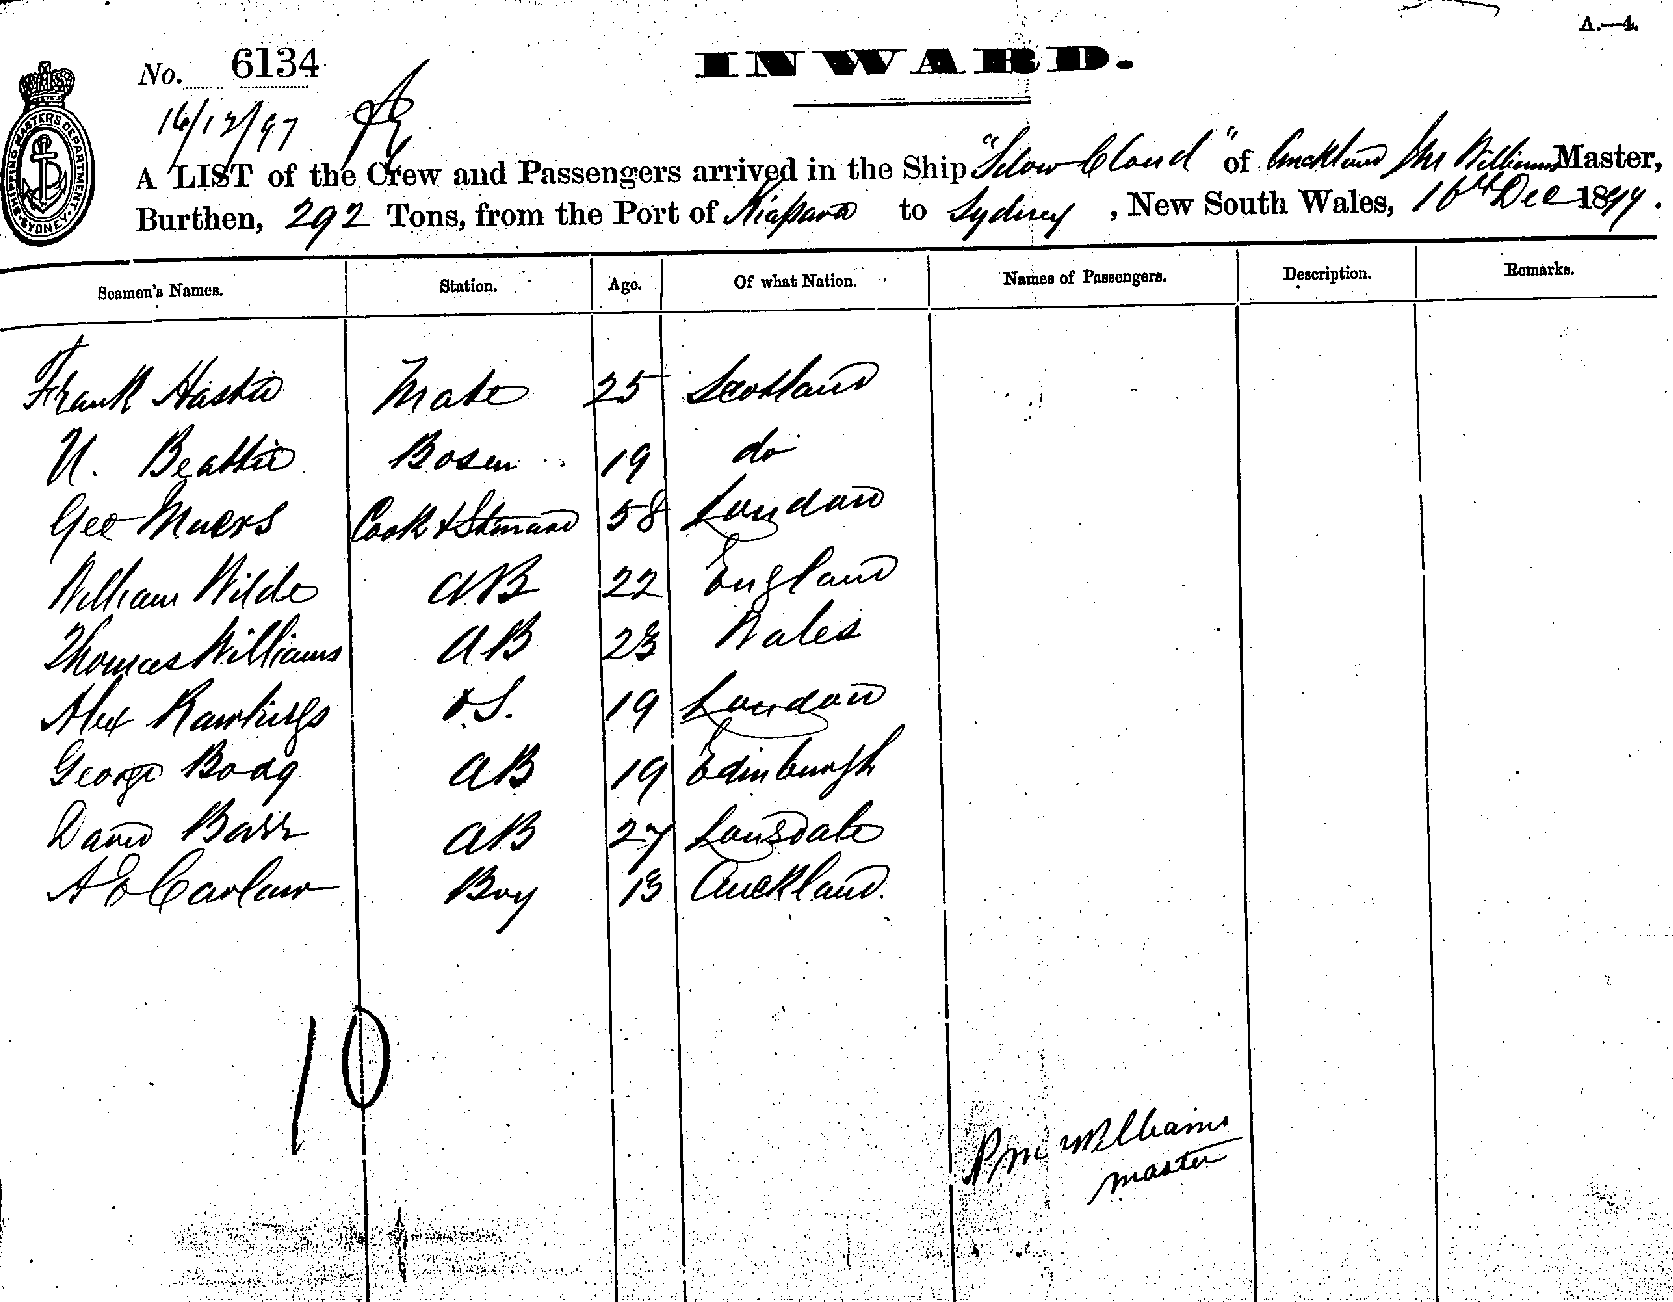 A.—4.
No. 6134
INWARD.
16/12/97
SHIPPING MASTERS DEPARTMENT SYDNEY
A LIST of the Crew and Passengers arrived in the Ship "Cloud" of Auckland Williams Master,
Burthen, 292 Tons, from the Port of Kaipara to Sydney, New South Wales, 16th Dec 1897.
Seamen's Names. Station. Age. Of what Nation. Names of Passengers. Description. Remarks.
Frank Hastie Mate 25 Scotland
Beattie Bosen 19 do
Geo Myers Cook & Steward 58 London
William Wilde AB 22 England
Thomas Williams AB 23 Wales
Alex Rawlings 19 London
George AB 19 Edinburgh
David Barr AB 27 Lonsdale
A E Carlaw Boy 13 Auckland.
10
P M Williams
master